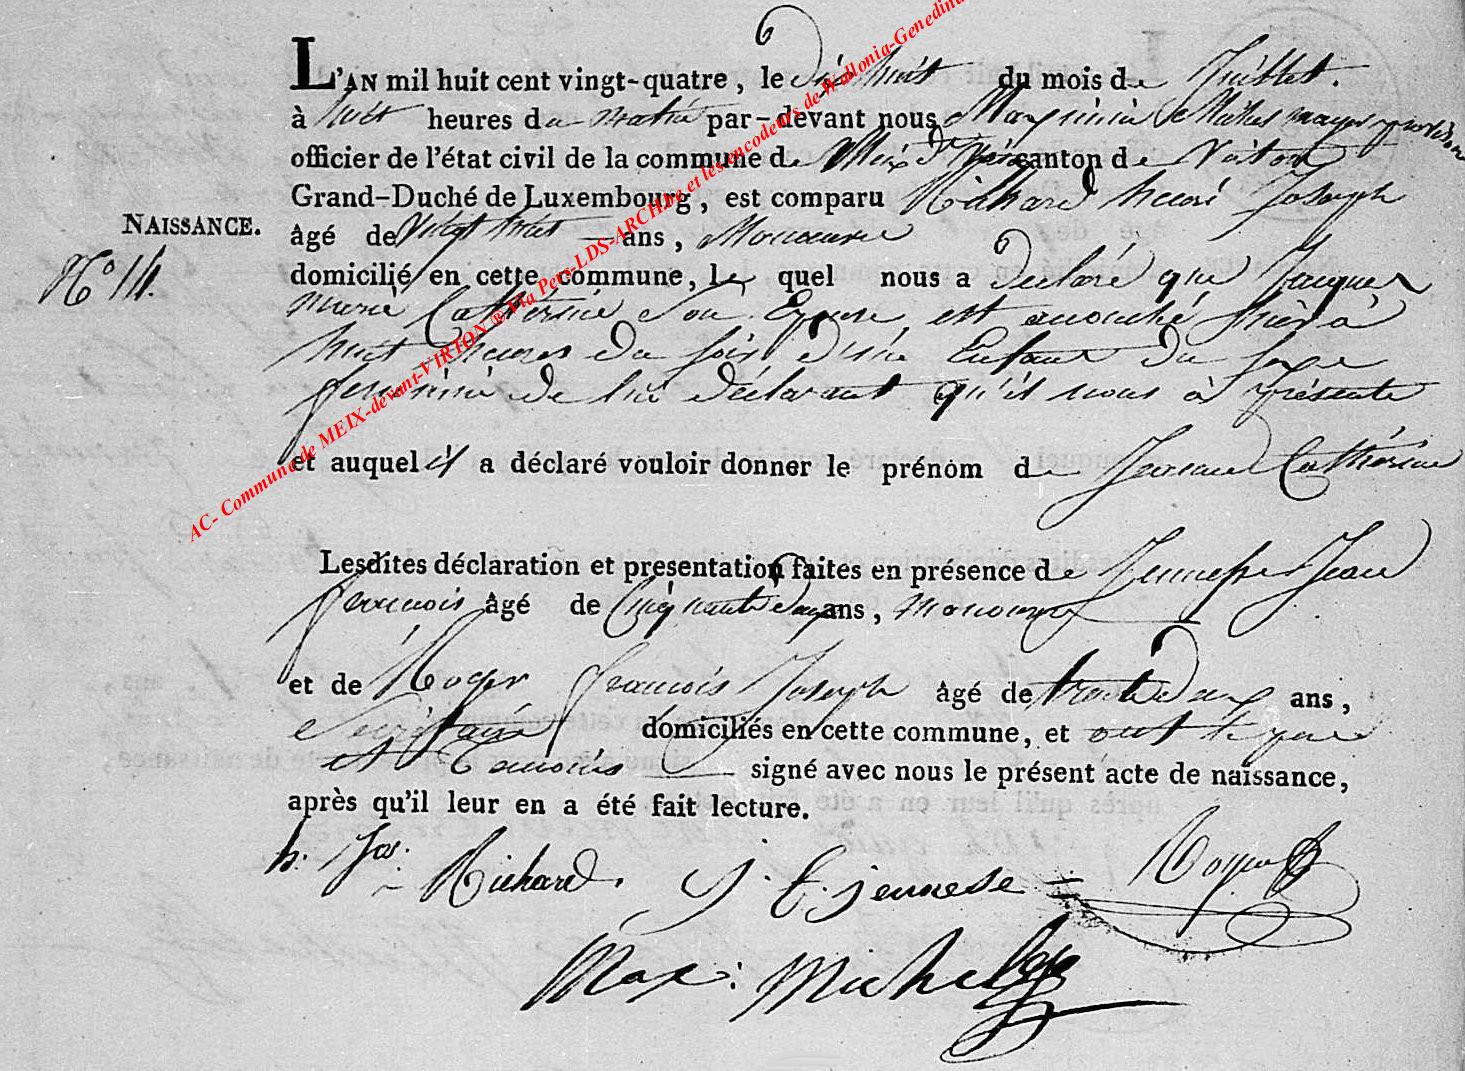 L'AN mil huit cent vingt-quatre, le dix huit du mois de Juillet.
à huit heures du matin par-devant nous Maximin Michel mayeur
officier de l'état civil de la commune de Meix dt Virton canton de Virton
Grand-Duché de Luxembourg, est comparu Richard henri Joseph
NAISSANCE.
âgé de vingt huit ans, Manoeuvre
No 14.
domicilié en cette commune, le quel nous a déclaré que Jaques
marie Catherine Son Epouse est accouché hier à
huit heures du soir d'un Enfant du sexe
feminin de lui déclarant qu'il nous à présenté
et auquel il a déclaré vouloir donner le prénom de Jeanne Catherine
Lesdites déclaration et presentation faites en présence de Jennesse Jean
françois âgé de Cinquante deux ans, manoeuvre
et de Roger françois Joseph âgé de trente deux ans,
Secrétaire domiciliés en cette commune, et ont le pere
et témoins signé avec nous le présent acte de naissance,
après qu'il leur en a été fait lecture.
h. Jos. Richard. j. f. jennesse Roger
Max: Michel
AC- Commune de MEIX-devant-VIRTON ® Via Pers-LDS-ARCH.be et les encodeurs de Wallonia-Genedinª